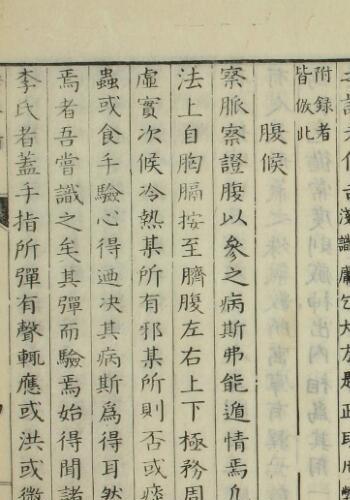 附録者
皆倣此
腹候
察脈察證腹以參之病斯弗能遁情焉凡
法上自胸膈按至臍腹左右上下極務周
虛實次候冷熱某所有邪某所則否或痰
蟲或食手驗心得迺決其病斯爲得耳然
焉者吾嘗識之矣其彈而驗焉始得聞諸
李氏者蓋手指所彈有聲輒應或洪或微